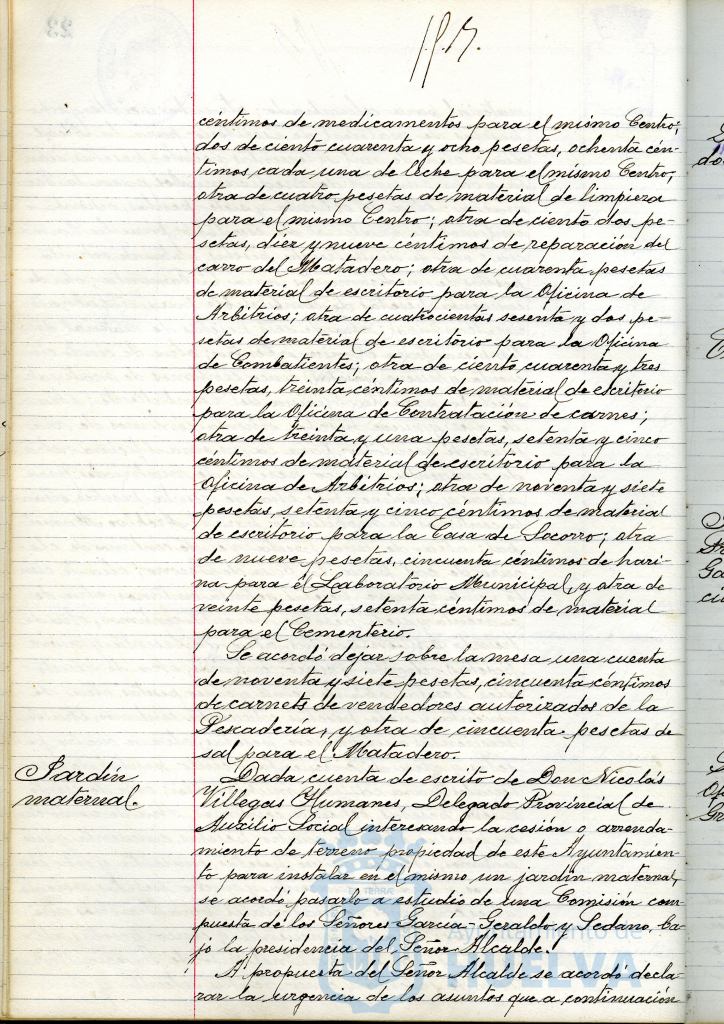 céntimos de medicamentos para el mismo Centro;
dos de ciento cuarenta y ocho pesetas, ochenta cén-
timos, cada una de leche para el mismo Centro;
otra de cuatro pesetas de material de limpieza
para el mismo Centro; otra de ciento dos pe-
setas, diez y nueve céntimos de reparación del
carro del Matadero; otra de cuarenta pesetas
de material de escritorio para la Oficina de
Arbitrios; otra de cuatrocientas sesenta y dos pe-
setas de material de escritorio para la Oficina
de Combatientes; otra de ciento cuarenta y tres
pesetas, treinta céntimos de material de escritorio
para la Oficina de Contratación de carnes;
otra de treinta y una pesetas, setenta y cinco
céntimos de material de escritorio para la
Oficina de Arbitrios; otra de noventa y siete
pesetas, setenta y cinco céntimos de material
de escritorio para la Casa de Socorro; otra
de nueve pesetas, cincuenta céntimos de hari-
na para el Laboratorio Municipal, y otra de
veinte pesetas, setenta céntimos de material
para el Cementerio.
Se acordó dejar sobre la mesa una cuenta
de noventa y siete pesetas, cincuenta céntimos
de carnets de vendedores autorizados de la
Pescadería, y otra de cincuenta pesetas de
sal para el Matadero.
Jardín
maternal.
Dada cuenta de escrito de Don Nicolás
Villegas Humanes, Delegado Provincial de
Auxilio Social interesando la cesión o arrenda-
miento de terreno propiedad de este Ayuntamien-
to para instalar en el mismo un jardín maternal,
se acordó pasarlo a estudio de una Comisión com-
puesta de los Señores García-Geraldo y Sedano, ba-
jo la presidencia del Señor Alcalde.
A propuesta del Señor Alcalde se acordó decla-
rar la urgencia de los asuntos que a continuación
Ayuntamiento de
HUELVA